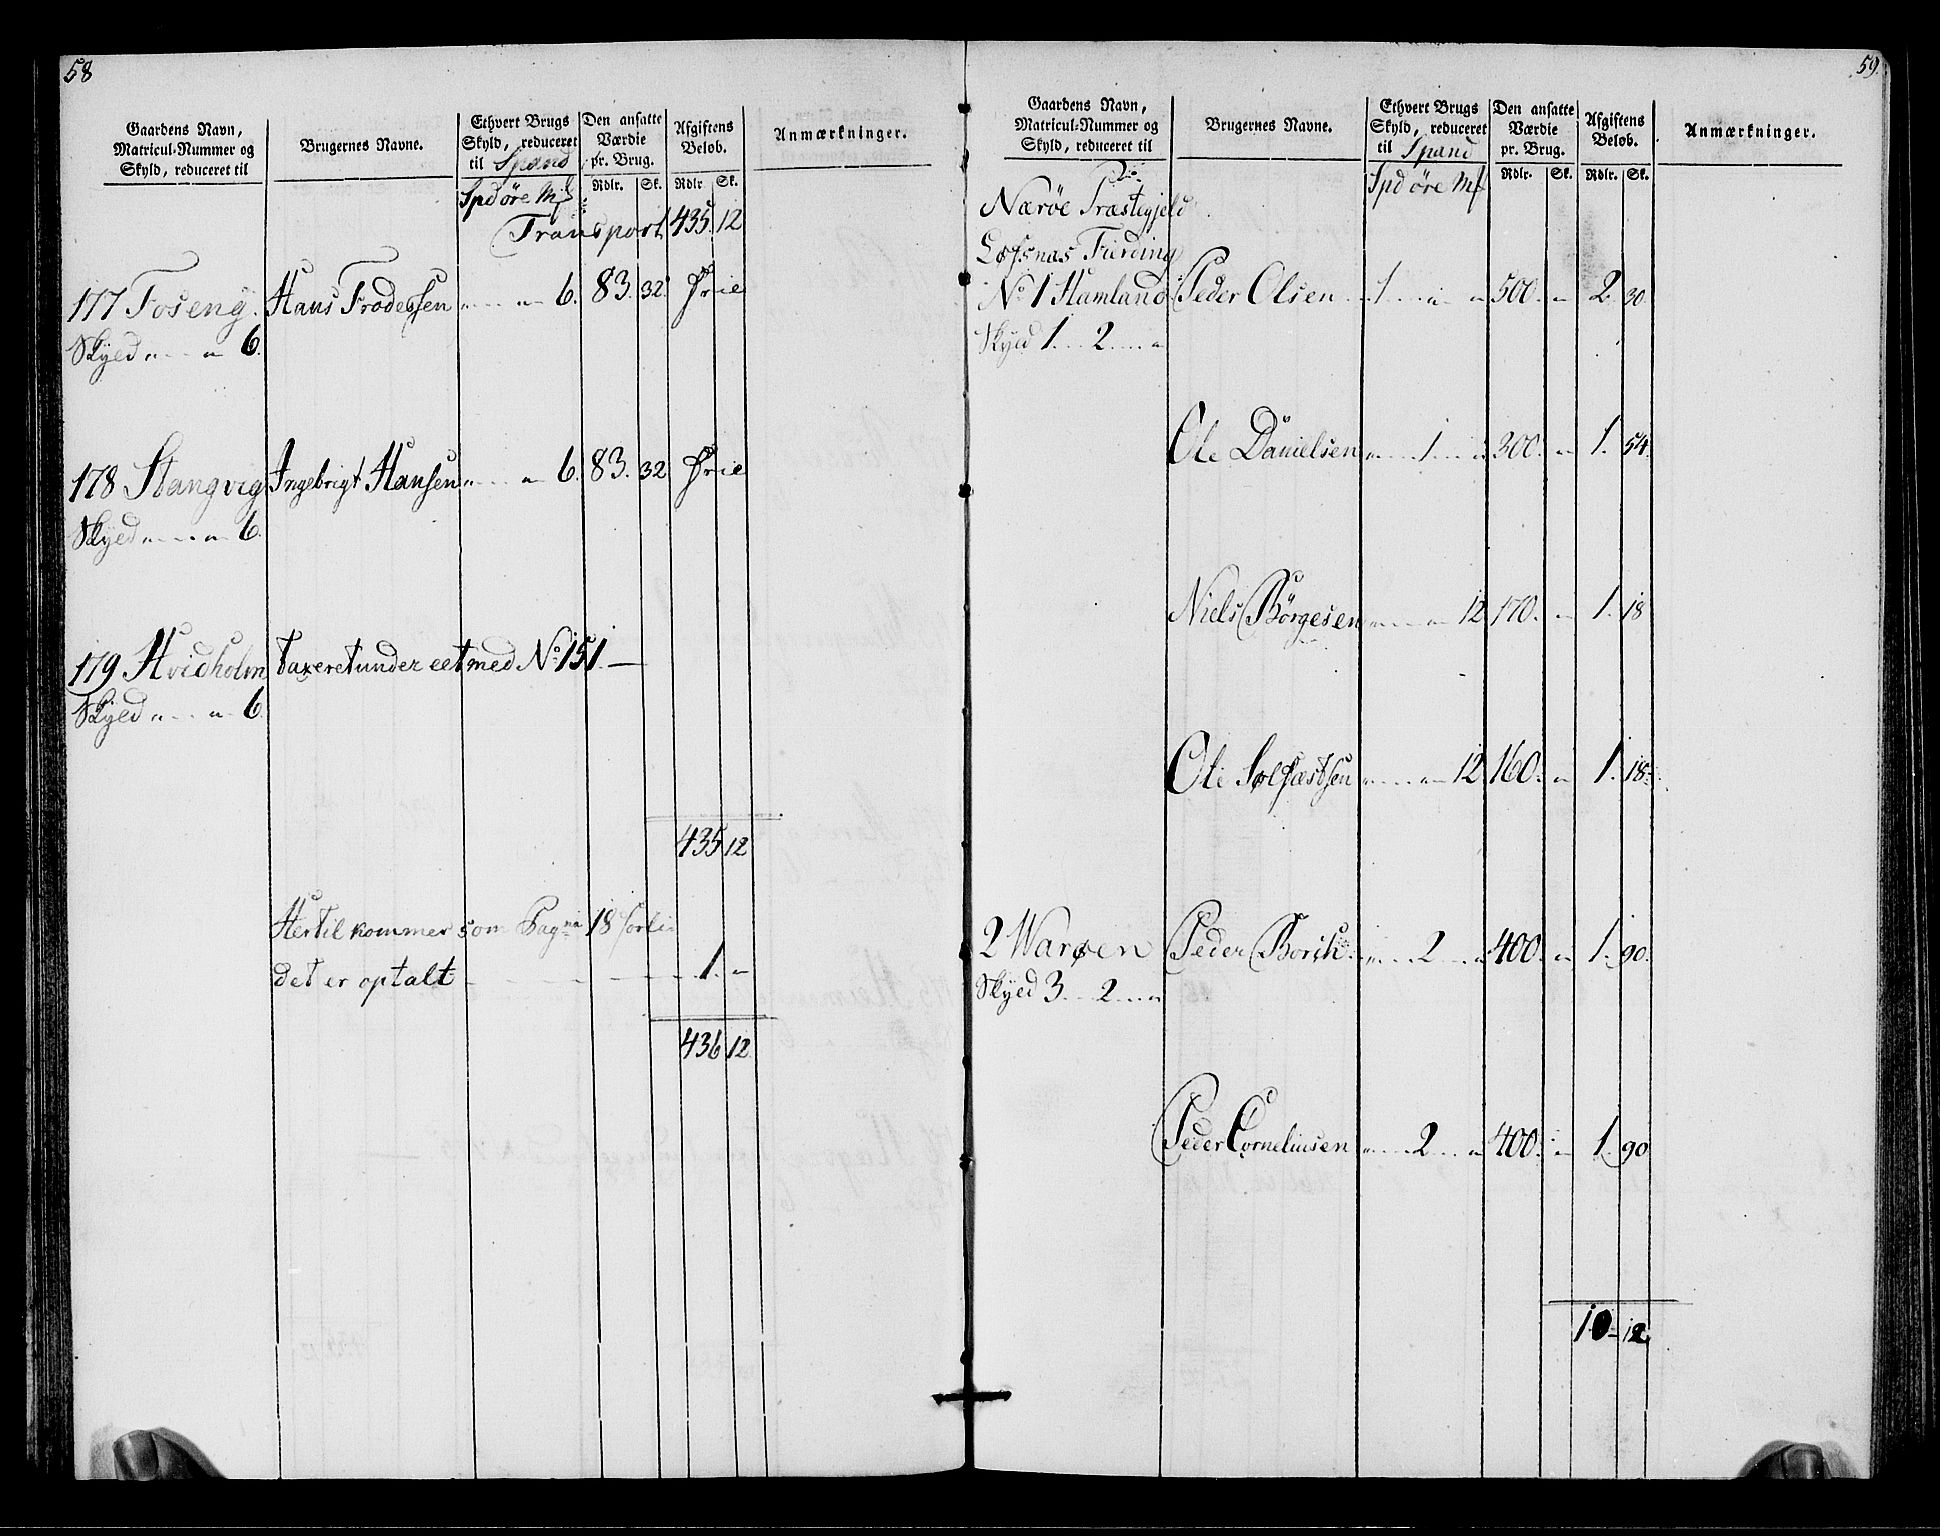 58
Gaardens Navn,
Matricul-Nummer og
Skyld, reduceret til
Brugernes Navne.
Ethvert Brugs
Skyld, reduceret
til Spand
Den ansatte
Værdie
pr. Brug.
Afgiftens
Beløb.
Anmærkninger.
Spd øre Mk
Rdlr. Sk. Rdlr Sk.
Transport 435. 12
177 Foseng. Hans Frodessen " " 6. 83. 32. Frie
Skyld " " 6.
178 Stangvig Ingebrigt Hansen " " 6. 83. 32 Frie
Skyld " " 6.
179 Hvidholm taxeret under eet med No 151. —
Skyld " " 6.
435 12
Hertil kommer som Pag na 18 forli-
det er optalt - - - 1. "
436 12
59.
Gaardens Navn,
Matricul-Nummer og
Skyld, reduceret til
Brugernes Navne.
Ethvert Brugs
Skyld, reduceret
til Spand
Den ansatte
Værdie
pr. Brug.
Afgiftens
Beløb.
Anmærkninger.
Spd øre Mk
Rdlr. Sk. Rdlr. Sk.
Nærøe Præstegjeld
Lofsnæs Fierding
No 1 Hamland Peder Olsen 1 " " 500. " 2. 30.
Skyld 1 " 2 " "
Ole Danielsen " 1 " 300. " 1. 54.
Niels Børgesen " " 12 170. " 1. 18
Ole Solfæstsen " " 12 160. " 1. 18.
2 Warøen Peder Borch " 2 " 400. " 1. 90.
Skyld 3 " 2 " "
Peder Corneliusen " 2 " 400. " 1. 90
10 12